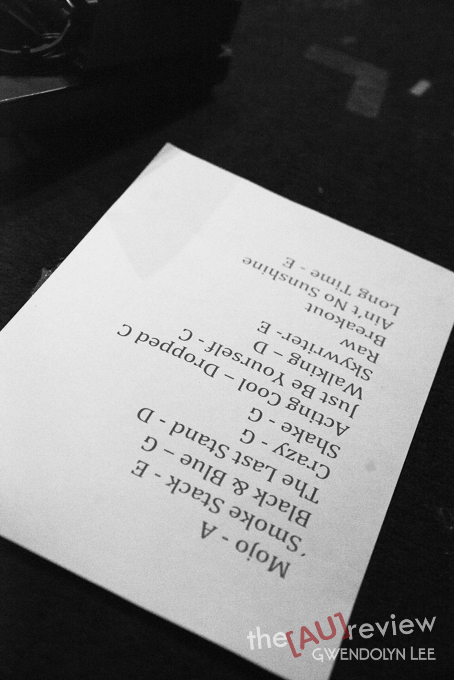 Mojo - A
'Smoke Stack - E
Black & Blue – G
The Last Stand - D
Crazy - G
Shake - G
Acting Cool – Dropped C
Just Be Yourself - C
Walking – D
Skywriter- E
Raw
Breakout
Ain't No Sunshine
Long Time - E
the[AU]review
GWENDOLYN LEE